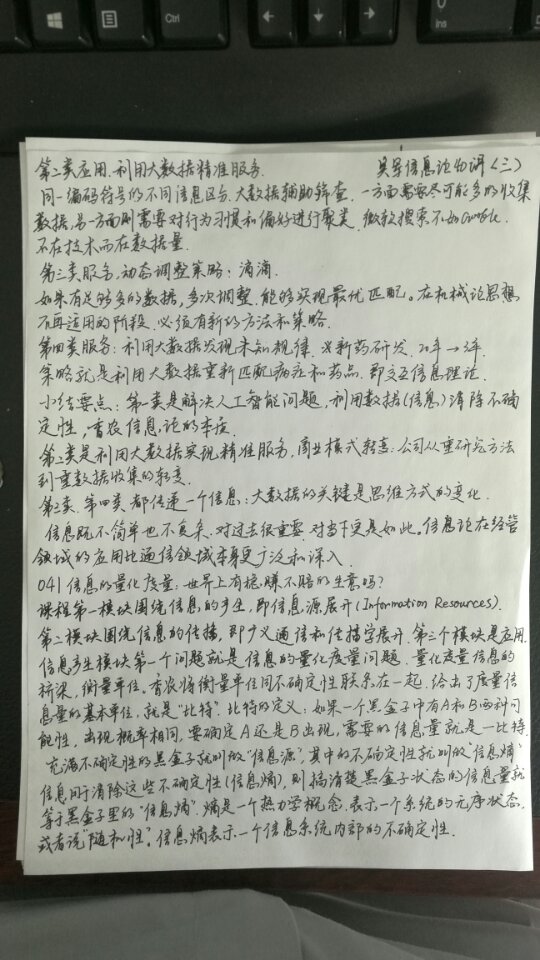 Ctrl
Alt
Ctrl
Ins
第二类应用.利用大数据精准服务. 吴军信息论40讲(三)
同一编码符号的不同信息区分.大数据辅助筛查.一方面需要尽可能多的收集
数据,另一方面则需要对行为习惯和偏好进行聚类.微软搜索不如Google.
不在技术而在数据量.
第三类服务.动态调整策略:滴滴.
如果有足够多的数据,多次调整.能够实现最优匹配。在机械论思想
不再适用的阶段.必须有新的方法和策略.
第四类服务:利用大数据发现未知规律.  新药研发.20年→3年.
策略就是利用大数据重新匹配病症和药品.即交互信息理论.
小结要点:第一类是解决人工智能问题,利用数据(信息)消除不确
定性,香农信息论的本质.
第二类是利用大数据实现精准服务,商业模式转变:公司从重研究方法
到重数据收集的转变.
第三类.第四类.都传递一个信息:大数据的关键是思维方式的变化.
信息既不简单也不复杂.对过去很重要.对当下更是如此。信息论在经管
领域的应用比通信领域本身更广泛和深入.
041信息的量化度量:世界上有稳赚不赔的生意吗?
课程第一模块围绕信息的产生.即信息源展开(Information Resources).
第二模块围绕信息的传播,即广义通信和传播学展开.第三个模块是应用.
信息产生模块第一个问题就是信息的量化度量问题.量化度量信息的
桥梁.衡量单位.香农将衡量单位同不确定性联系在一起.给出了度量信
息量的基本单位,就是“比特”.比特的定义:如果一个黑盒子中有A和B两种可
能性,出现概率相同,要确定A还是B出现,需要的信息量就是一比特.
充满不确定性的黑盒子就叫做“信息源”,其中的不确定性就叫做“信息熵”
信息用于消除这些不确定性(信息熵),则搞清楚黑盒子状态的信息量就
等于黑盒子里的“信息熵”.熵是一个热力学概念.表示一个系统的无序状态.
或者说“随机性”。信息熵表示一个信息系统内部的不确定性.